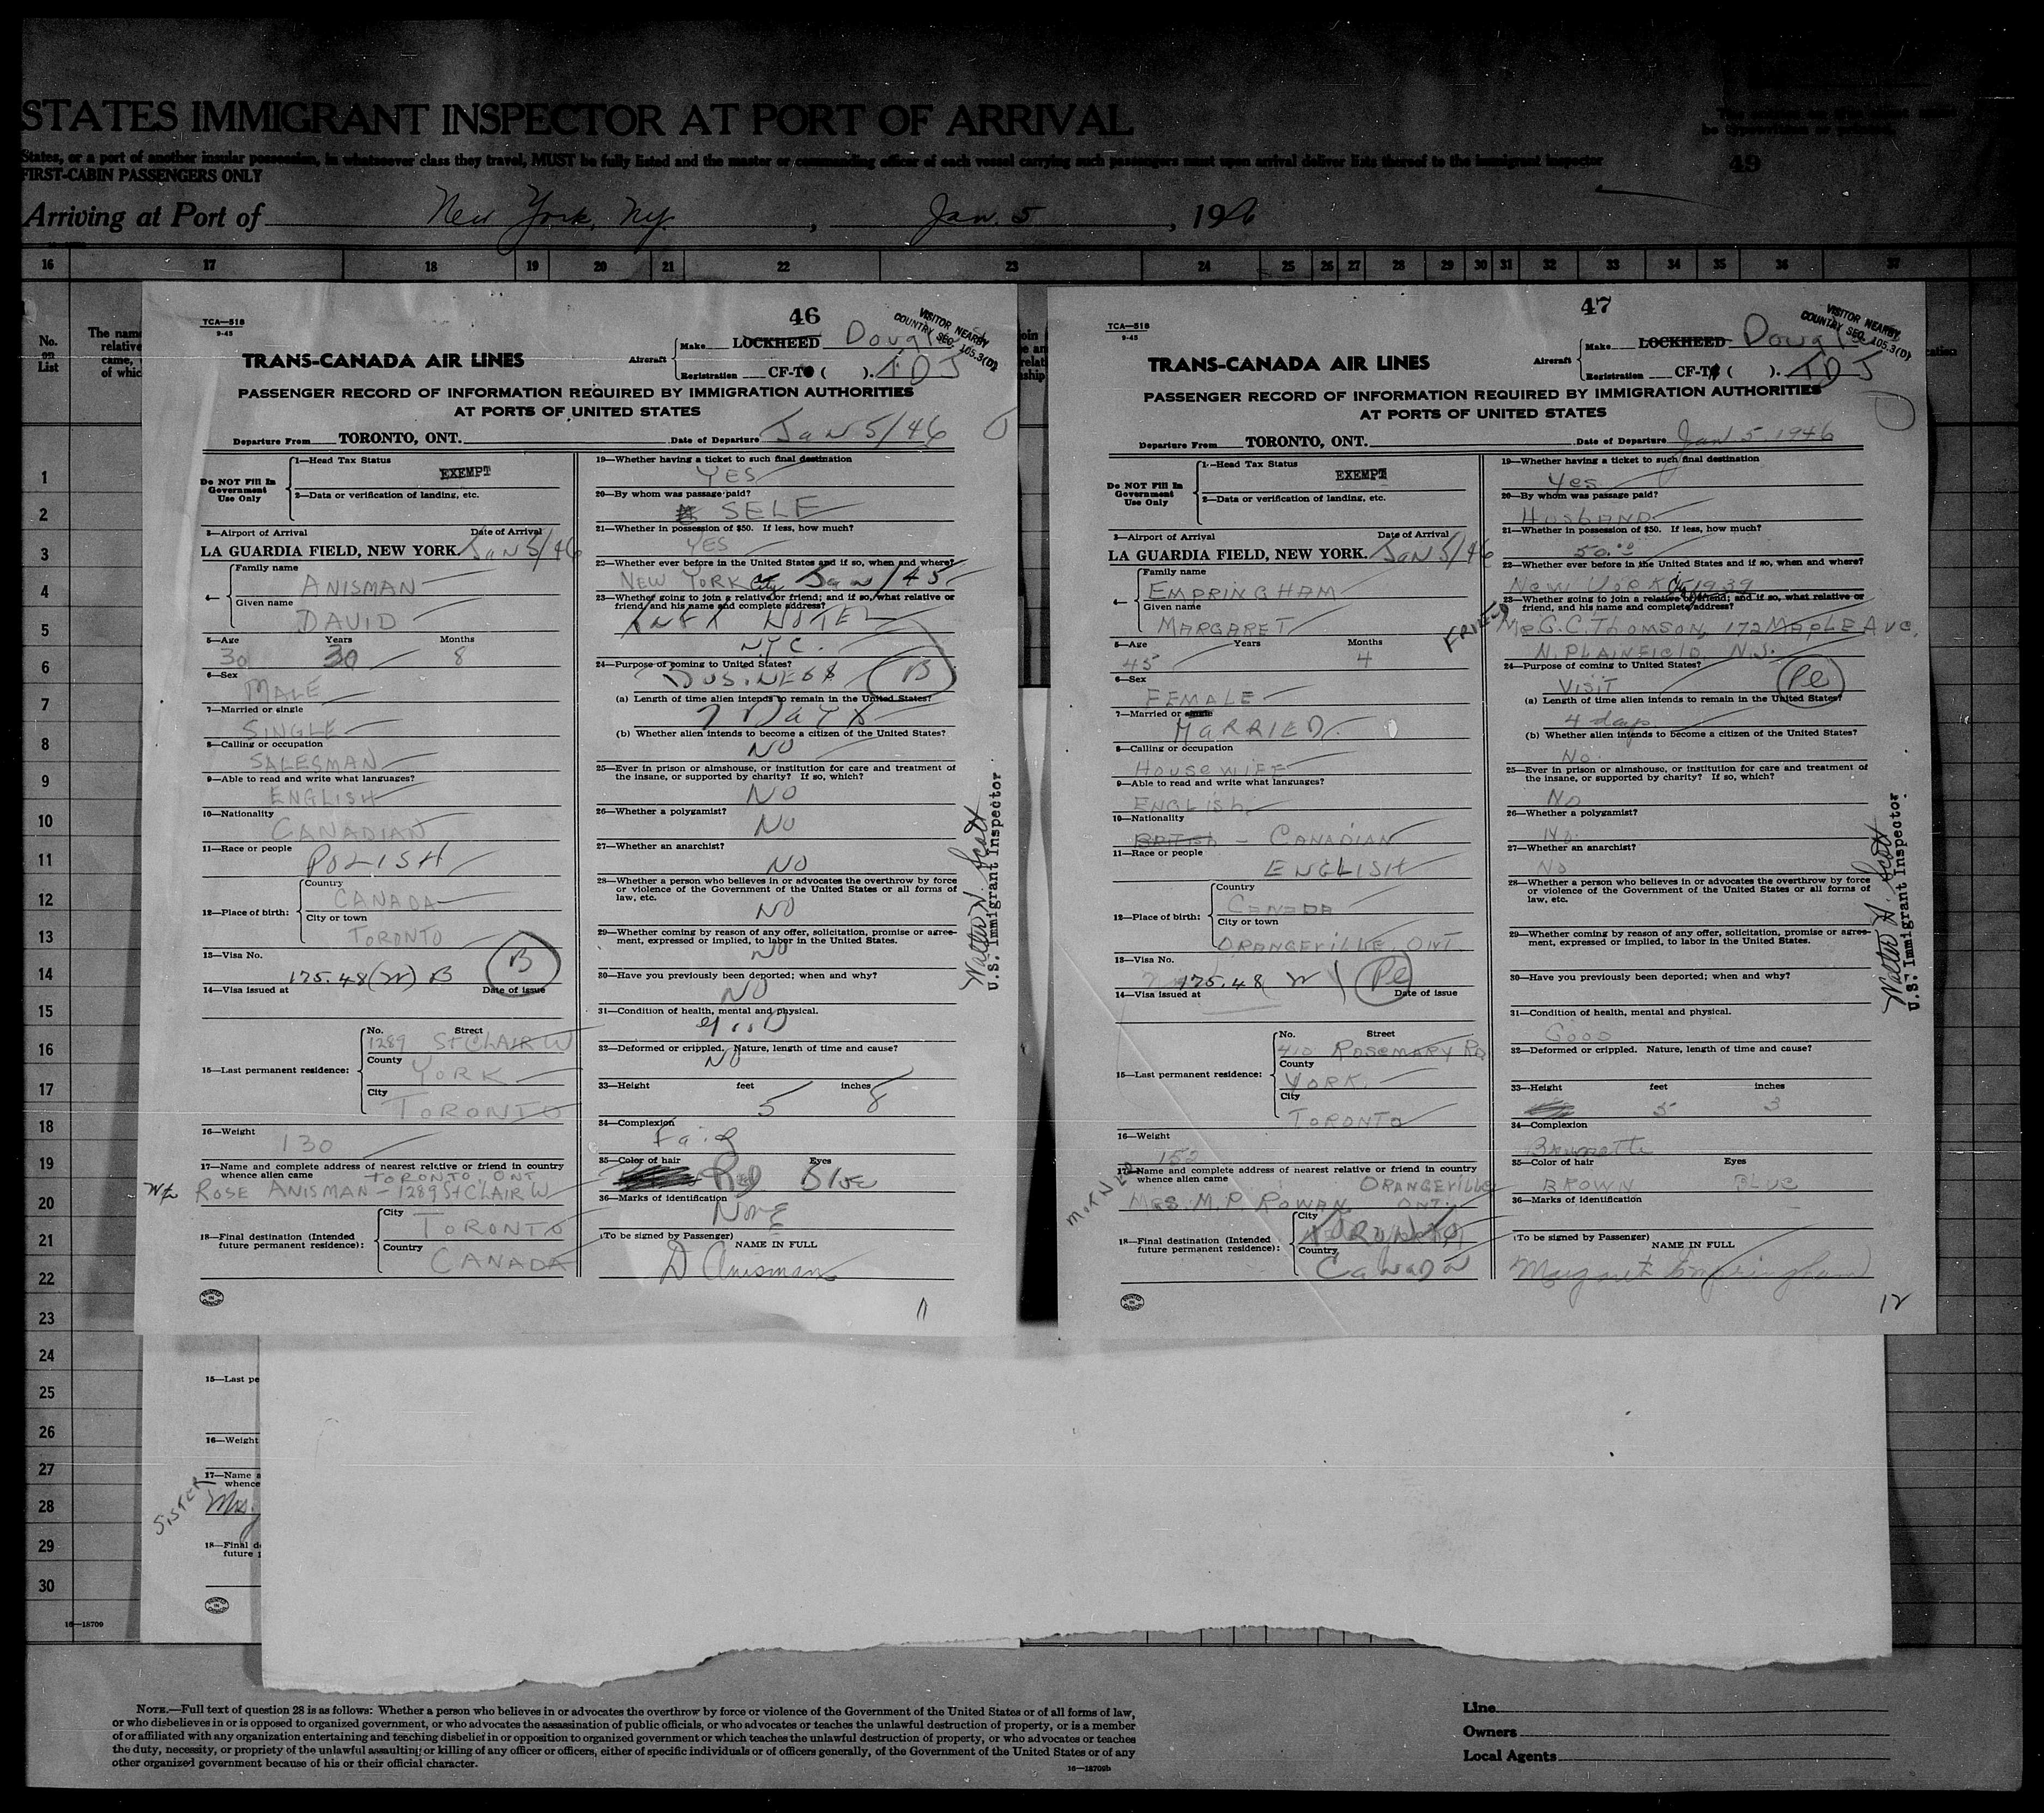 STATES IMMIGRANT INSPECTOR AT PORT OF ARRIVAL
States, or a port of another insular possession, in whatsoever class they travel, MUST be fully listed and the master or commanding officer of each vessel carrying such passengers must upon arrival deliver lists thereof to the immigrant inspector
FIRST-CABIN PASSENGERS ONLY
49
Arriving at Port of New York, N.Y. , Jan. 5 , 1946
16 17 18 19 20 21 22 23 24 25 26 27 28 29 30 31 32 33 34 35 36 37
No. on List
The name
relative
came,
of which
46
TCA—518
9-45
VISITOR NEARBY
COUNTRY SEC 105.3(D)
TRANS-CANADA AIR LINES
Aircraft
Make LOCKHEED Douglas
Registration CF-T ( ). TDJ
PASSENGER RECORD OF INFORMATION REQUIRED BY IMMIGRATION AUTHORITIES
AT PORTS OF UNITED STATES
Departure From TORONTO, ONT. Date of Departure Jan 5/46
Do NOT Fill In
Government
Use Only
1—Head Tax Status EXEMPT
2—Data or verification of landing, etc.
3—Airport of Arrival Date of Arrival
LA GUARDIA FIELD, NEW YORK. Jan 5/46
4— Family name
ANISMAN
Given name
DAVID
5—Age Years Months
30 30 8
6—Sex
MALE
7—Married or single
SINGLE
8—Calling or occupation
SALESMAN
9—Able to read and write what languages?
ENGLISH
10—Nationality
CANADIAN
11—Race or people
POLISH
12—Place of birth:
Country
CANADA
City or town
TORONTO
13—Visa No.
175.48(W) B B
14—Visa issued at Date of issue
15—Last permanent residence:
No. Street
1289 St CLAIR W
County
YORK
City
TORONTO
16—Weight
130
17—Name and complete address of nearest relative or friend in country
whence alien came TORONTO, ONT
ROSE ANISMAN - 1289 St CLAIR W
18—Final destination (Intended
future permanent residence):
City
TORONTO
Country
CANADA
19—Whether having a ticket to such final destination
YES
20—By whom was passage paid?
SELF
21—Whether in possession of $50. If less, how much?
YES
22—Whether ever before in the United States and if so, when and where?
NEW YORK City Jan/45
23—Whether going to join a relative or friend; and if so, what relative or
friend, and his name and complete address?
HOTEL
N.Y.C.
24—Purpose of coming to United States?
BUSINESS B
(a) Length of time alien intends to remain in the United States?
7 DAYS
(b) Whether alien intends to become a citizen of the United States?
NO
25—Ever in prison or almshouse, or institution for care and treatment of
the insane, or supported by charity? If so, which?
NO
26—Whether a polygamist?
NO
27—Whether an anarchist?
NO
28—Whether a person who believes in or advocates the overthrow by force
or violence of the Government of the United States or all forms of
law, etc.
NO
29—Whether coming by reason of any offer, solicitation, promise or agree-
ment, expressed or implied, to labor in the United States.
NO
30—Have you previously been deported; when and why?
NO
31—Condition of health, mental and physical.
good
32—Deformed or crippled. Nature, length of time and cause?
NO
33—Height feet inches
5 8
34—Complexion
Fair
35—Color of hair Eyes
Red Blue
36—Marks of identification
None
(To be signed by Passenger)
NAME IN FULL
D Anisman
Walter H. Scott
U.S. Immigrant Inspector
PRINTED IN CANADA
11
47
TCA—518
9-45
VISITOR NEARBY
COUNTRY SEC 105.3(D)
TRANS-CANADA AIR LINES
Aircraft
Make LOCKHEED Douglas
Registration CF-T ( ). TDJ
PASSENGER RECORD OF INFORMATION REQUIRED BY IMMIGRATION AUTHORITIES
AT PORTS OF UNITED STATES
Departure From TORONTO, ONT. Date of Departure Jan 5, 1946
Do NOT Fill In
Government
Use Only
1—Head Tax Status EXEMPT
2—Data or verification of landing, etc.
3—Airport of Arrival Date of Arrival
LA GUARDIA FIELD, NEW YORK. JAN 5/46
4— Family name
EMPRINGHAM
Given name
MARGARET
5—Age Years Months
45 4
6—Sex
FEMALE
7—Married or single
MARRIED
8—Calling or occupation
HOUSEWIFE
9—Able to read and write what languages?
ENGLISH
10—Nationality
British - CANADIAN
11—Race or people
ENGLISH
12—Place of birth:
Country
CANADA
City or town
ORANGEVILLE, ONT.
13—Visa No.
175.48 W Pl
14—Visa issued at Date of issue
15—Last permanent residence:
No. Street
410 ROSEMARY RD
County
YORK
City
TORONTO
16—Weight
152
17—Name and complete address of nearest relative or friend in country
whence alien came ORANGEVILLE
MOTHER MRS. M. P. ROWAN ONT.
18—Final destination (Intended
future permanent residence):
City
TORONTO
Country
CANADA
19—Whether having a ticket to such final destination
Yes
20—By whom was passage paid?
HUSBAND
21—Whether in possession of $50. If less, how much?
50.00
22—Whether ever before in the United States and if so, when and where?
NEW YORK City 1939
23—Whether going to join a relative or friend; and if so, what relative or
friend, and his name and complete address?
FRIEND Mr G. C. THOMSON, 172 MAPLE AVE.
N. PLAINFIELD N.J.
24—Purpose of coming to United States?
VISIT Pl
(a) Length of time alien intends to remain in the United States?
4 days
(b) Whether alien intends to become a citizen of the United States?
No.
25—Ever in prison or almshouse, or institution for care and treatment of
the insane, or supported by charity? If so, which?
No
26—Whether a polygamist?
No.
27—Whether an anarchist?
No
28—Whether a person who believes in or advocates the overthrow by force
or violence of the Government of the United States or all forms of
law, etc.
29—Whether coming by reason of any offer, solicitation, promise or agree-
ment, expressed or implied, to labor in the United States.
30—Have you previously been deported; when and why?
31—Condition of health, mental and physical.
GOOD
32—Deformed or crippled. Nature, length of time and cause?
33—Height feet inches
5 3
34—Complexion
Brunette
35—Color of hair Eyes
BROWN BLUE
36—Marks of identification
(To be signed by Passenger)
NAME IN FULL
Margaret Empringham
Walter H. Scott
U.S. Immigrant Inspector
PRINTED IN CANADA
12
1
2
3
4
5
6
7
8
9
10
11
12
13
14
15
16
17
18
19
20
21
22
23
24
25
26
27
28
29
30
15—Last pe
16—Weight
17—Name a
whence
SISTER Mrs.
18—Final d
future p
PRINTED IN CANADA
16—18709
NOTE.—Full text of question 28 is as follows: Whether a person who believes in or advocates the overthrow by force or violence of the Government of the United States or of all forms of law,
or who disbelieves in or is opposed to organized government, or who advocates the assassination of public officials, or who advocates or teaches the unlawful destruction of property, or is a member
of or affiliated with any organization entertaining and teaching disbelief in or opposition to organized government or which teaches the unlawful destruction of property, or who advocates or teaches
the duty, necessity, or propriety of the unlawful assaulting or killing of any officer or officers, either of specific individuals or of officers generally, of the Government of the United States or of any
other organized government because of his or their official character.
16—18709b
Line
Owners
Local Agents